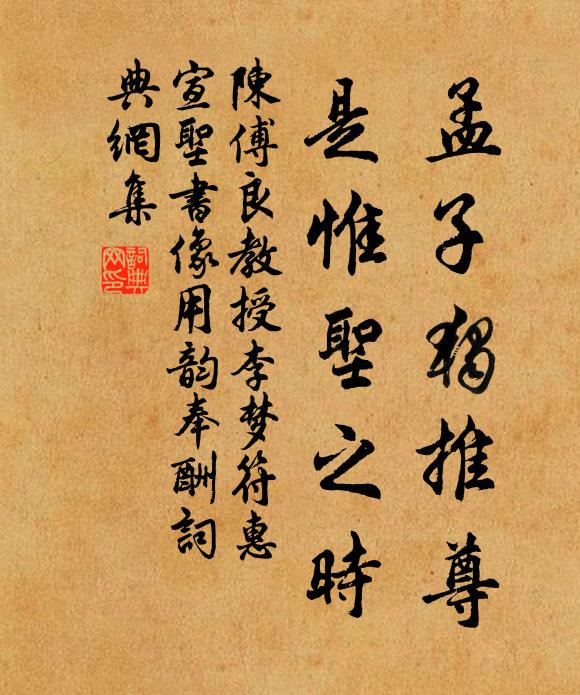 孟子獨推尊
是惟聖之時
陳傅良教授李梦符惠
宣聖書像用韵奉酬詞
典網集
詞典
网印